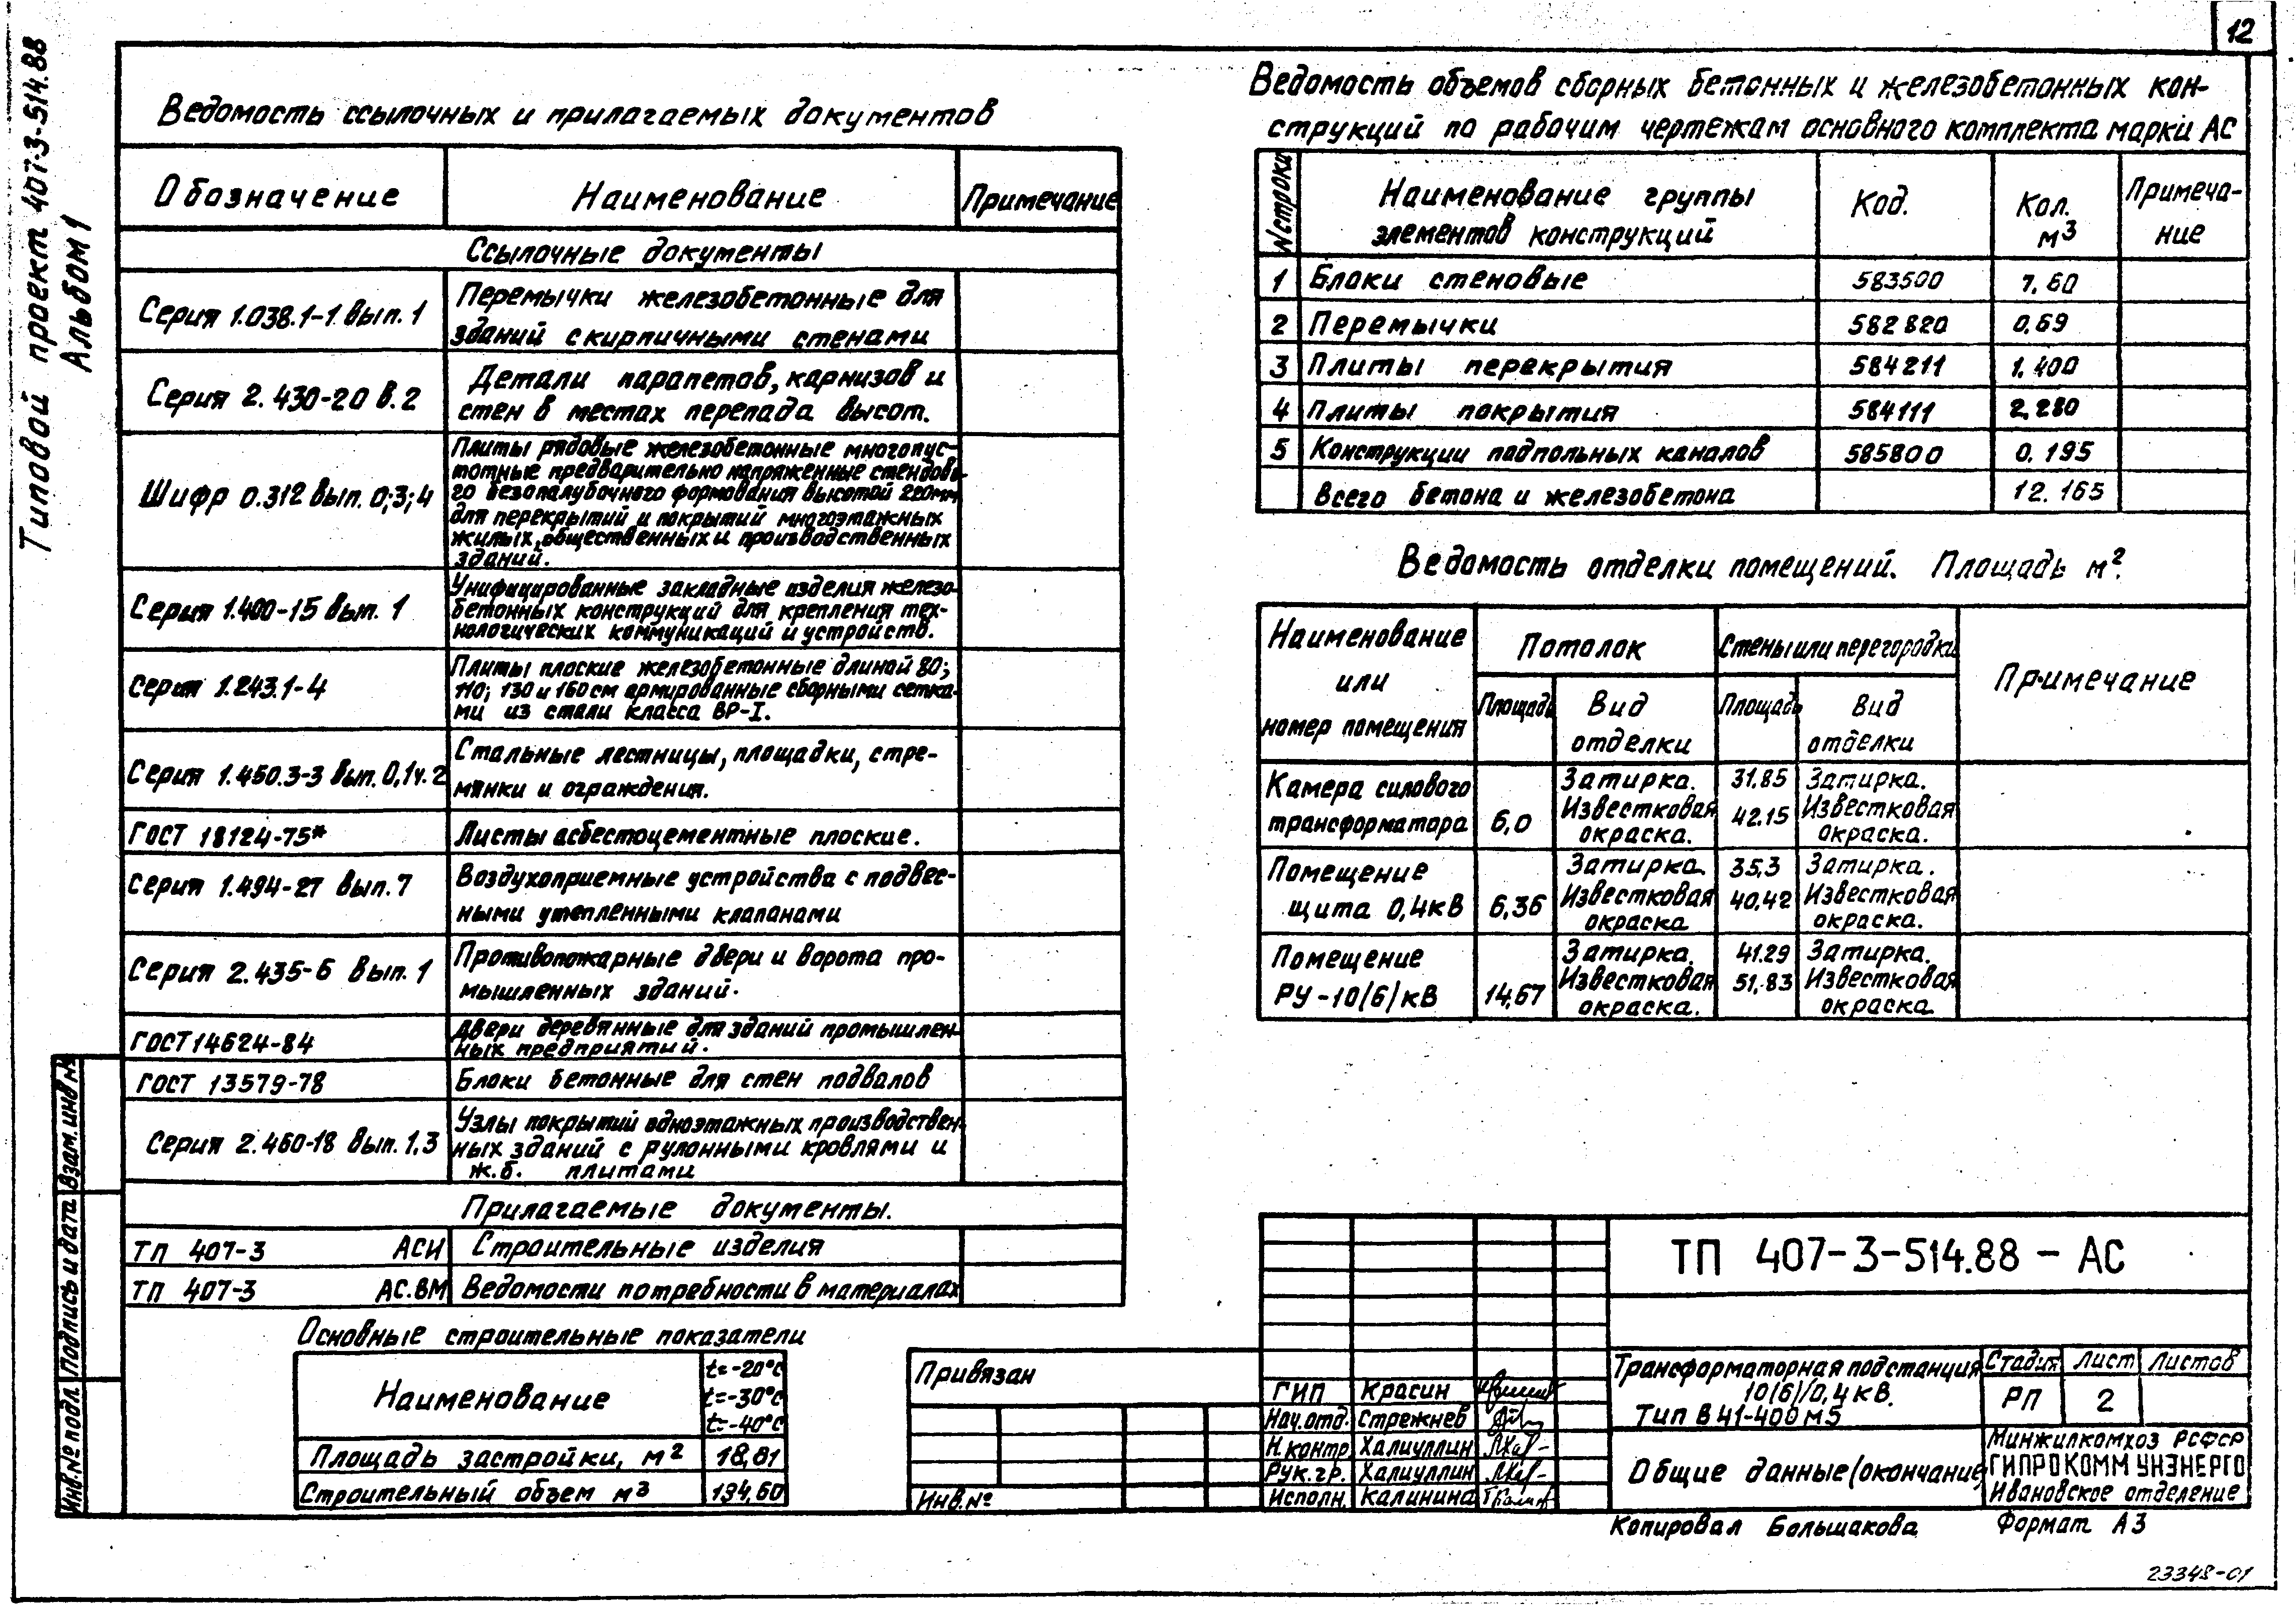 12
Типовой проект 407-3-514.88
Альбом 1
Ведомость ссылочных и прилагаемых документов
Обозначение Наименование Примечание
Ссылочные документы
Серия 1.038.1-1 вып. 1 Перемычки железобетонные для
зданий с кирпичными стенами
Серия 2.430-20 в.2 Детали парапетов, карнизов и
стен в местах перепада высот.
Шифр 0.312 вып. 0;3;4 Плиты рядовые железобетонные многопус-
тотные предварительно напряженные стендово-
го безопалубочного формования высотой 220мм,
для перекрытий и покрытий многоэтажных
жилых, общественных и производственных
зданий.
Серия 1.400-15 вып. 1 Унифицированные закладные изделия железо-
бетонных конструкций для крепления тех-
нологических коммуникаций и устройств.
Серия 1.243.1-4 Плиты плоские железобетонные длиной 80;
110; 130 и 160 см армированные сборными сетка-
ми из стали класса ВР-I.
Серия 1.450.3-3 вып. 0,1ч.2 Стальные лестницы, площадки, стре-
мянки и ограждения.
ГОСТ 18124-75* Листы асбестоцементные плоские.
Серия 1.494-27 вып. 7 Воздухоприемные устройства с подвес-
ными утепленными клапанами
Серия 2.435-6 вып. 1 Противопожарные двери и ворота про-
мышленных зданий.
ГОСТ 14624-84 Двери деревянные для зданий промышлен-
ных предприятий.
ГОСТ 13579-78 Блоки бетонные для стен подвалов
Серия 2.460-18 вып. 1,3 Узлы покрытий одноэтажных производствен-
ных зданий с рулонными кровлями и
ж.б. плитами
Прилагаемые документы.
ТП 407-3 АСИ Строительные изделия
ТП 407-3 АС.ВМ Ведомости потребности в материалах
Основные строительные показатели
Наименование t=-20°С
t=-30°С
t=-40°С
Площадь застройки, м2 18,81
Строительный объем м3 134,60
Ведомость объемов сборных бетонных и железобетонных кон-
струкций по рабочим чертежам основного комплекта марки АС
N строки Наименование группы элементов конструкций Код. Кол. м3 Примеча-
ние
1 Блоки стеновые 583500 7.60
2 Перемычки 582820 0.69
3 Плиты перекрытия 584211 1.400
4 Плиты покрытия 584111 2.280
5 Конструкции подпольных каналов 585800 0.195
Всего бетона и железобетона 12.165
Ведомость отделки помещений. Площадь м2.
Наименование или номер помещения Потолок Стены или перегородки Примечание
Площадь Вид отделки Площадь Вид отделки
Камера силового Затирка. 31.85 Затирка.
трансформатора 6,0 Известковая 42.15 Известковая
окраска. окраска.
Помещение Затирка. 35,3 Затирка.
щита 0,4кВ 6,36 Известковая 40,42 Известковая
окраска окраска.
Помещение Затирка. 41.29 Затирка.
РУ-10(6)кВ 14,67 Известковая 51,83 Известковая
окраска. окраска
Привязан
Инв.№
ГИП Красин
Нач.отд. Стрежнев
Н.контр. Халиуллин
Рук.гр. Халиуллин
Исполн. Калинина
ТП 407-3-514.88 - АС
Трансформаторная подстанция
10(6)/0,4 кВ.
Тип В41-400М5
Стадия Лист Листов
РП 2
Общие данные (окончание)
Минжилкомхоз РСФСР
ГИПРОКОММУНЭНЕРГО
Ивановское отделение
Копировал Большакова Формат А3
23348-01
Инв.№ подл. Подпись и дата Взам.инв №